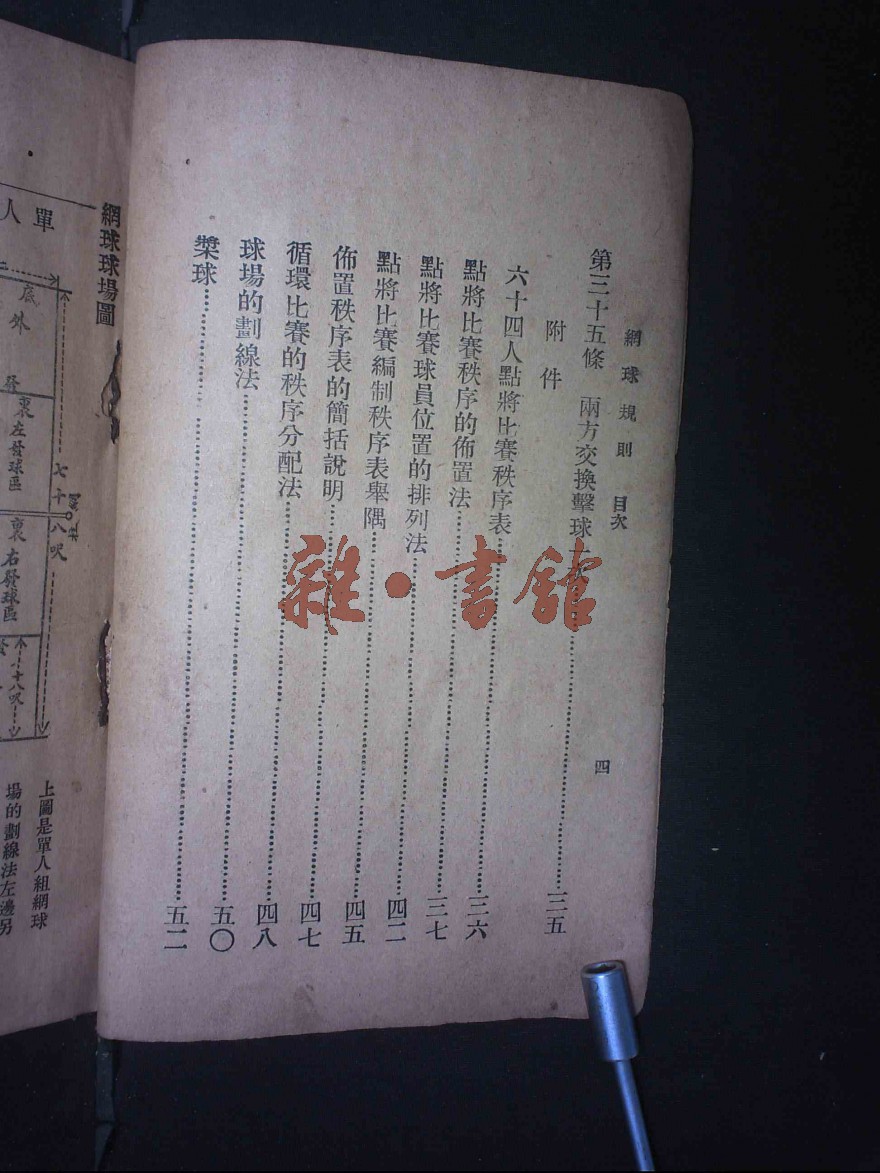 網球規則 目次
四
第三十五條 兩方交換擊球……三五
附件
六十四人點將比賽秩序表……三六
點將比賽秩序的佈置法……三七
點將比賽球員位置的排列法……四二
點將比賽編制秩序表舉隅……四五
佈置秩序表的簡括說明……四七
循環比賽的秩序分配法……四八
球場的劃線法……五〇
槳球……五二
雜·書舘
網球球場圖
單人
底外
裏左發球區
裏右發球區
七十八呎
十八呎
上圖是單人組網球
場的劃線法左邊另